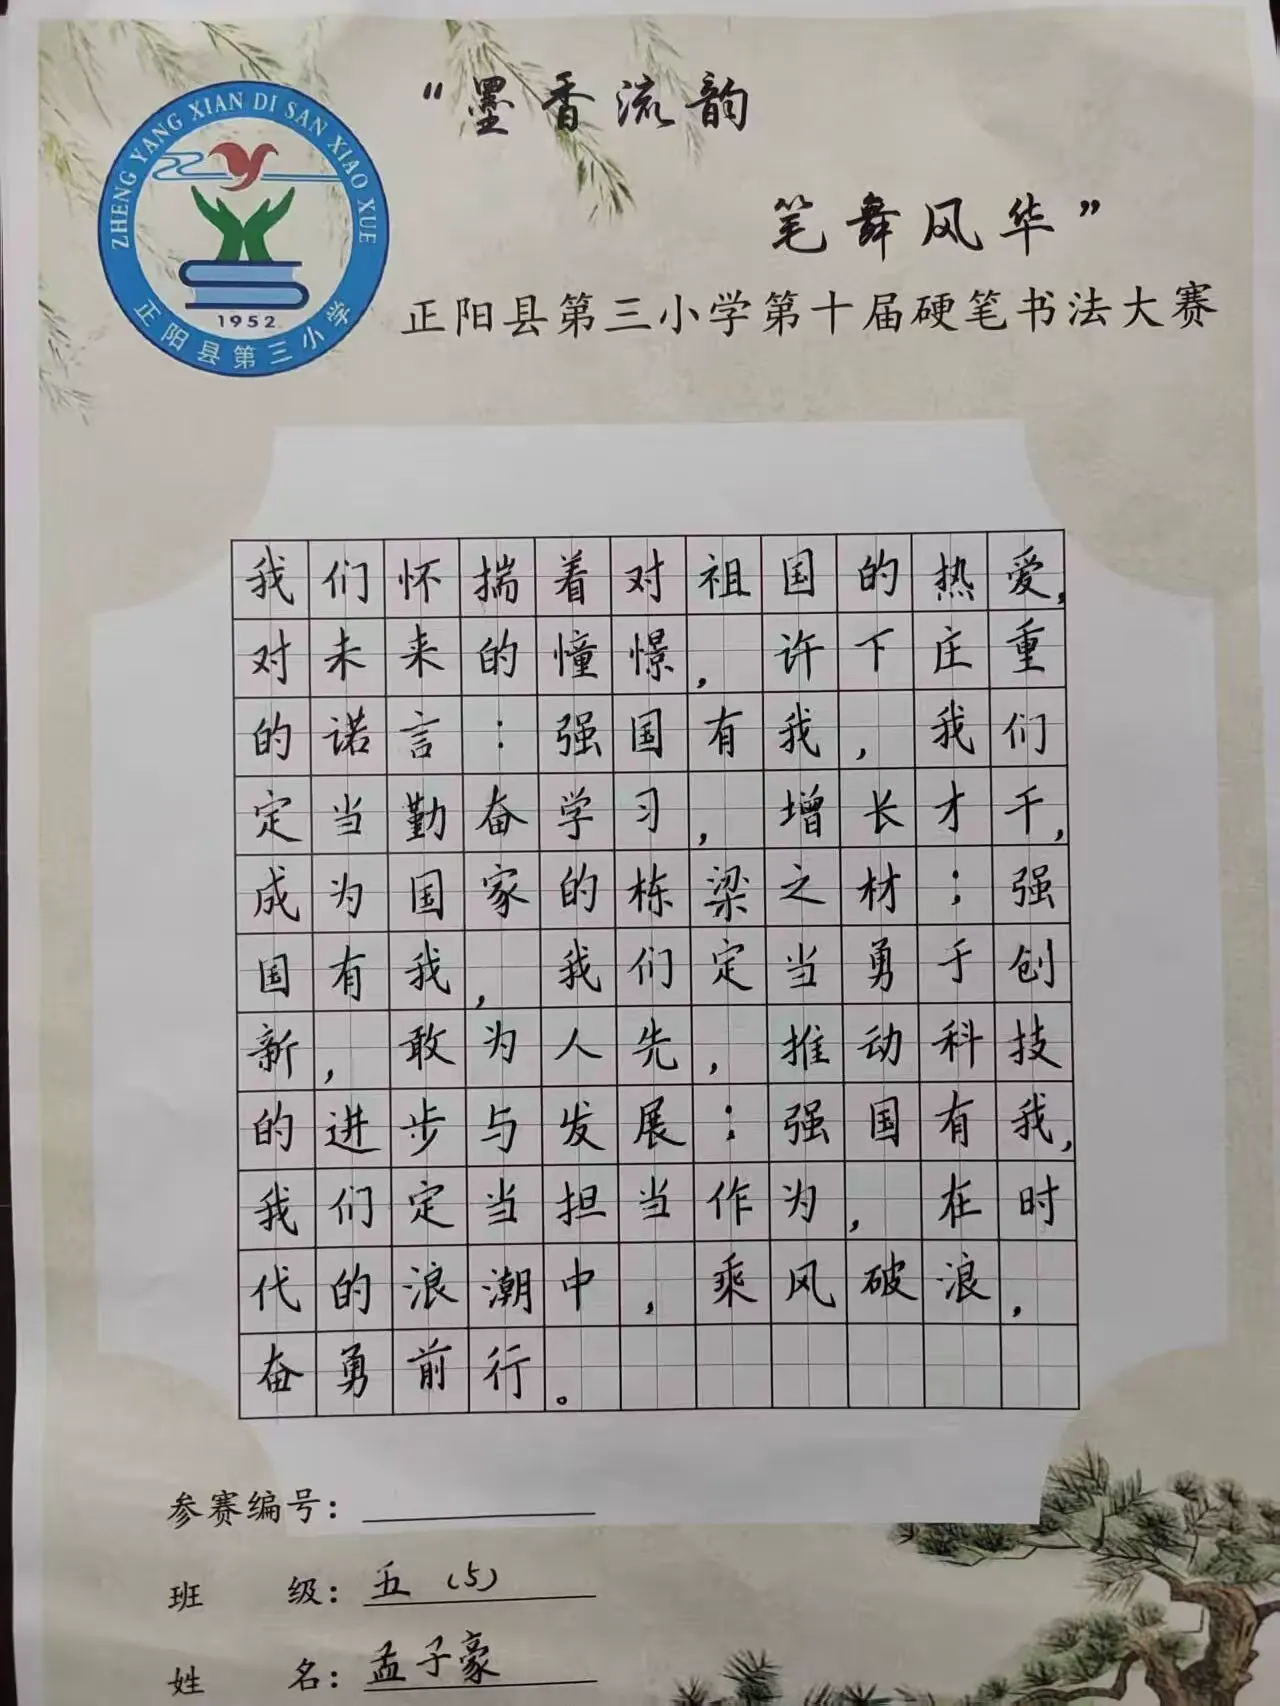 "墨香流韵
笔舞风华"
ZHENG YANG XIAN DI SAN XIAO XUE
1952
正阳县第三小学
正阳县第三小学第十届硬笔书法大赛
我们怀揣着对祖国的热爱,
对未来的憧憬,许下庄重
的诺言:强国有我,我们
定当勤奋学习,增长才干,
成为国家的栋梁之材;强
国有我,我们定当勇于创
新,敢为人先,推动科技
的进步与发展;强国有我,
我们定当担当作为,在时
代的浪潮中,乘风破浪,
奋勇前行。
参赛编号:
班级:五(5)
姓名:孟子豪